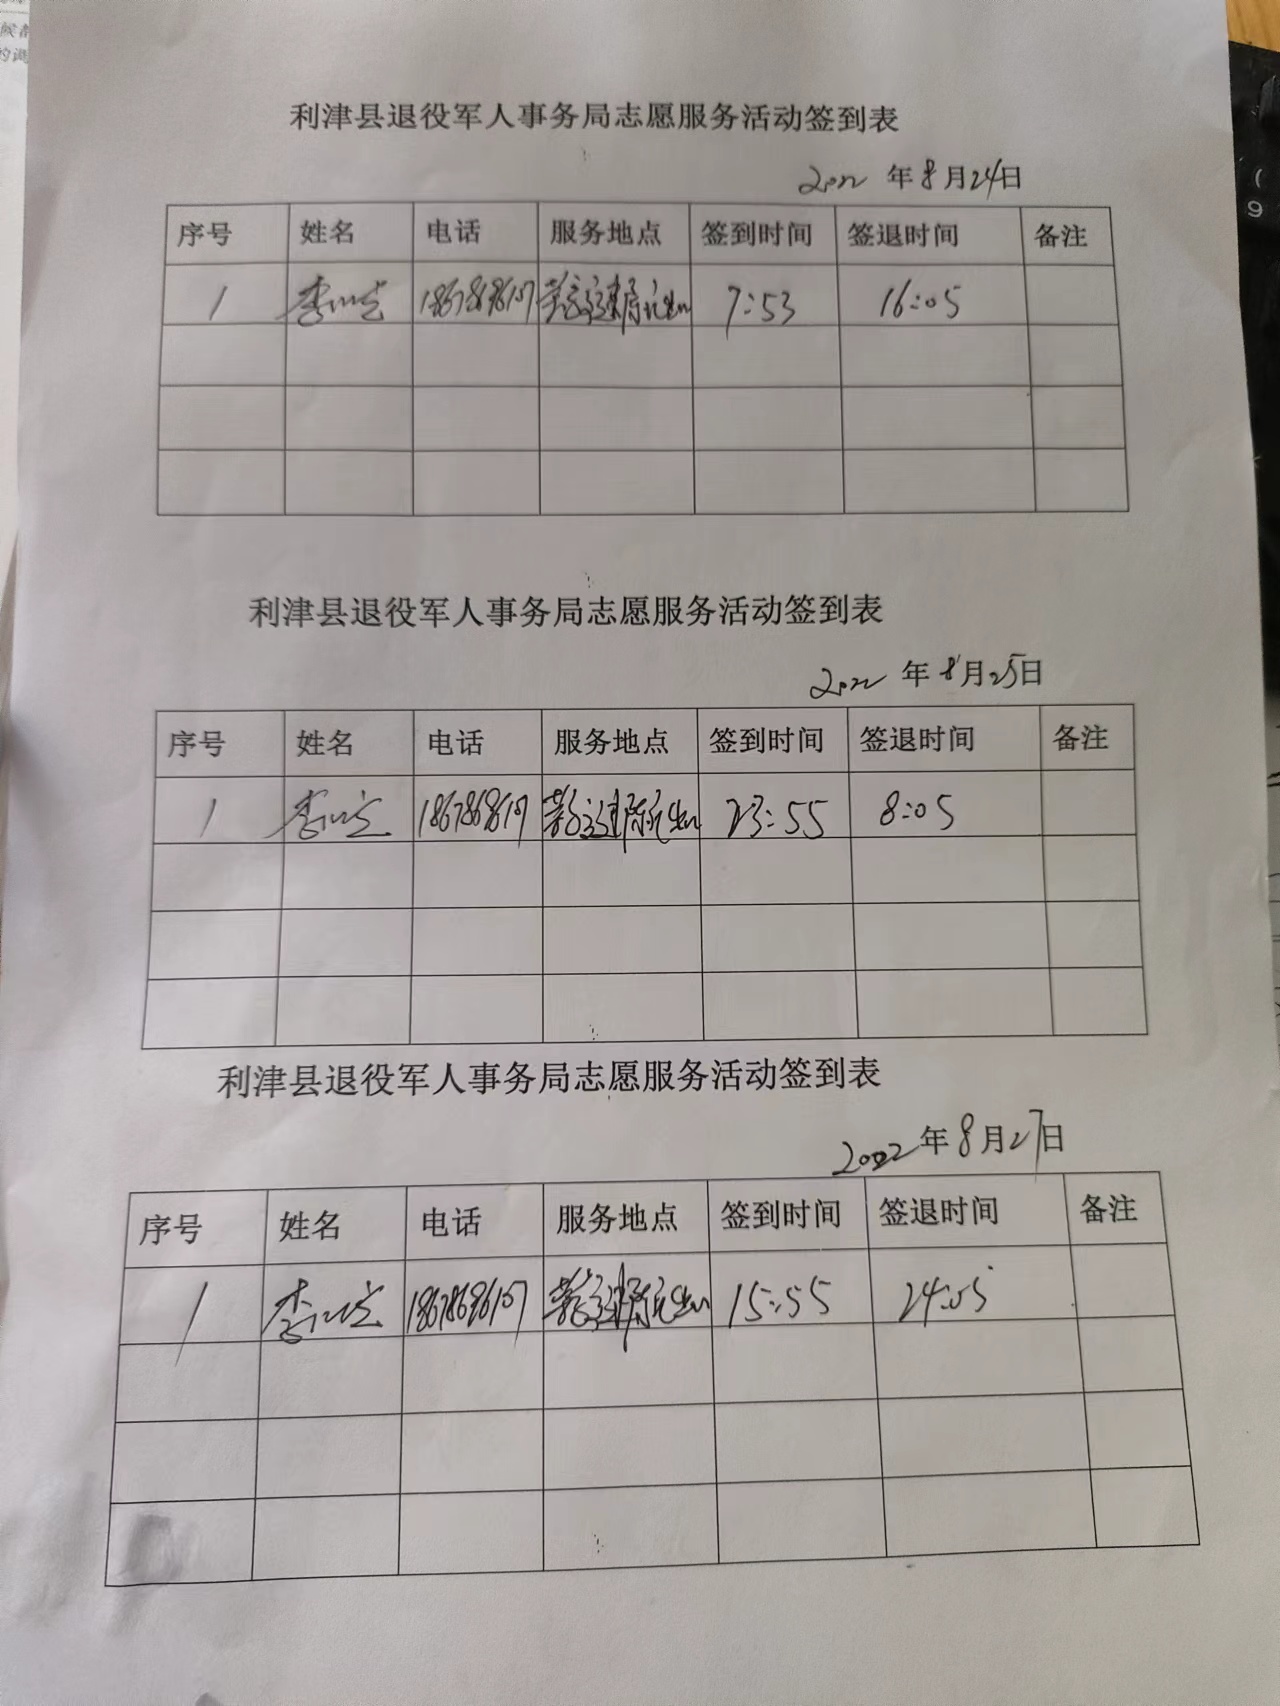 利津县退役军人事务局志愿服务活动签到表
2022 年 8 月 24 日
序号 姓名 电话 服务地点 签到时间 签退时间 备注
1 李 7:53 16:05
利津县退役军人事务局志愿服务活动签到表
2022 年 8 月 25 日
序号 姓名 电话 服务地点 签到时间 签退时间 备注
1 李 23:55 8:05
利津县退役军人事务局志愿服务活动签到表
2022 年 8 月 27 日
序号 姓名 电话 服务地点 签到时间 签退时间 备注
1 李 15:55 24:05